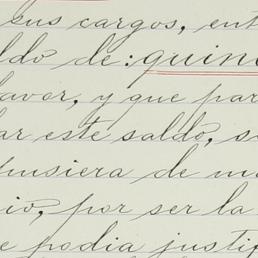 sus cargos, ent
ldo de: quin
avor, y que par
ar este saldo, s
pusiera de m
io, por ser la
e podia justif